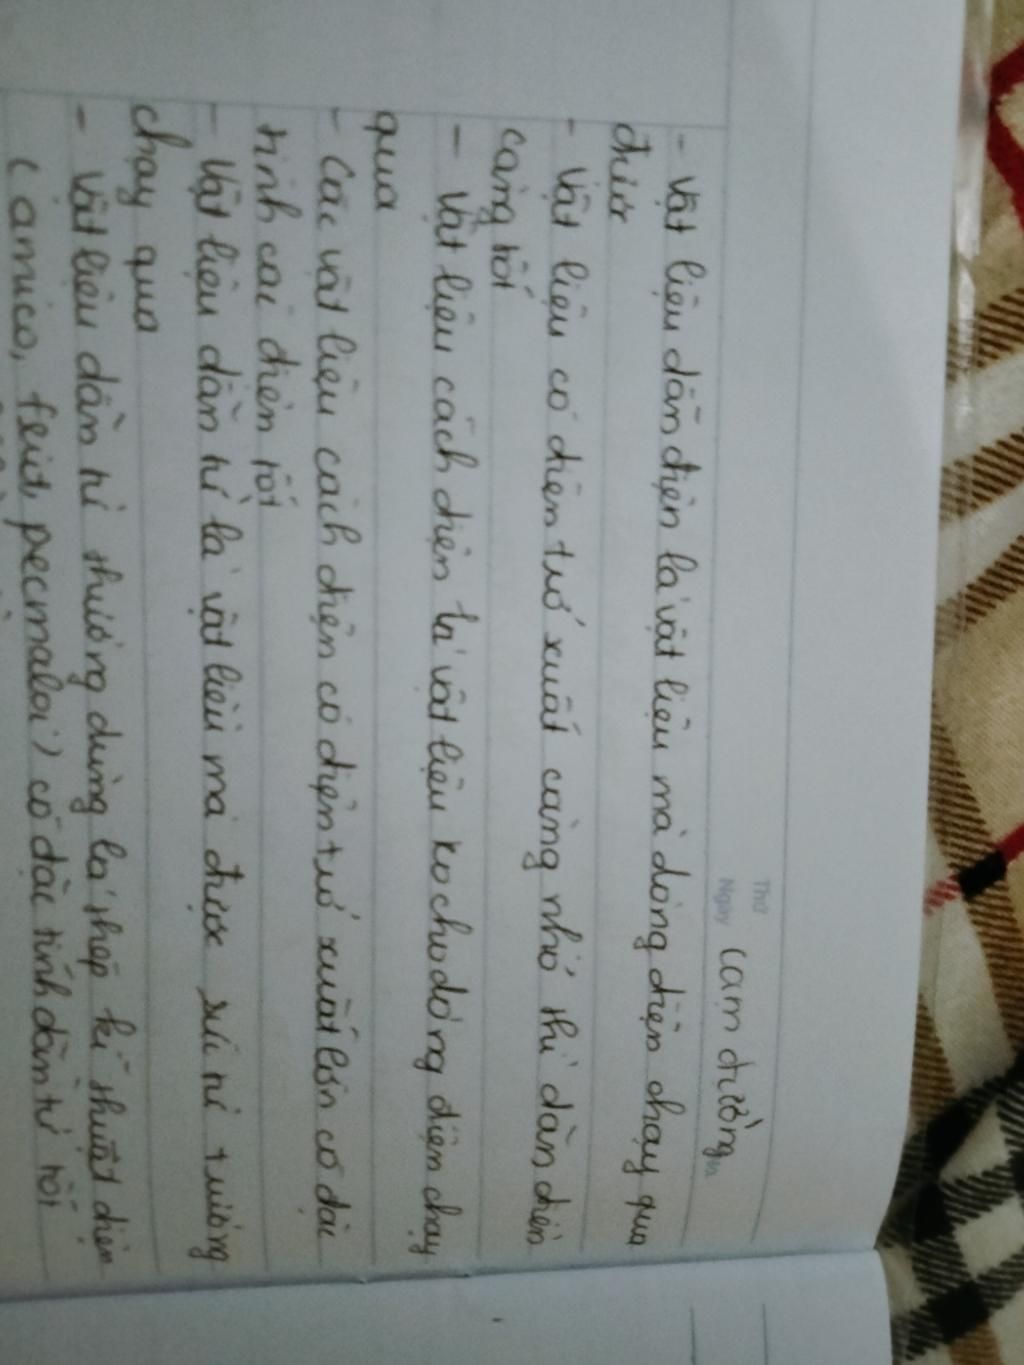 Thứ
Ngày
Cam đường
- Vật liệu dẫn điện là vật liệu mà dòng điện chạy qua
được
- Vật liệu có điện trở xuất càng nhỏ thì dẫn điện
càng tốt
- Vật liệu cách điện là vật liệu ko cho dòng điện chạy
qua
- Các vật liệu cách điện có điện trở xuất lớn có đặc
tính cai điện tốt
- Vật liệu dẫn từ là vật liệu mà được sức từ trường
chạy qua
- Vật liệu dẫn từ thường dùng là thép kĩ thuật điện
(amico, ferit, pecmaloi) có đặc tính dẫn từ tốt